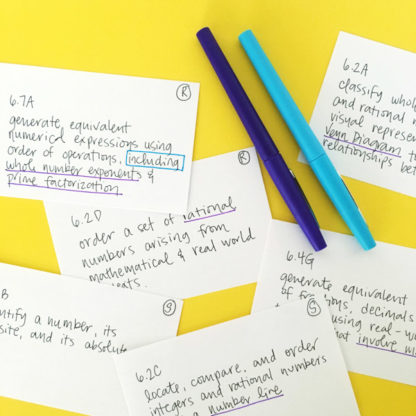 R
6.7A
generate equivalent
numerical expressions using
order of operations, including
whole number exponents &
prime factorization.
6.2A
classify whol
and rational n
visual represe
Venn Diagram to
relationships be
R
6.2D
order a set of rational
numbers arising from
mathematical & real world
S
6.4G
generate equivalent
of
decimals
using real-w
that involve
B
S
a number, its
site, and its absolute
S
6.2C
locate, compare, and order
integers and rational numbers
a number line